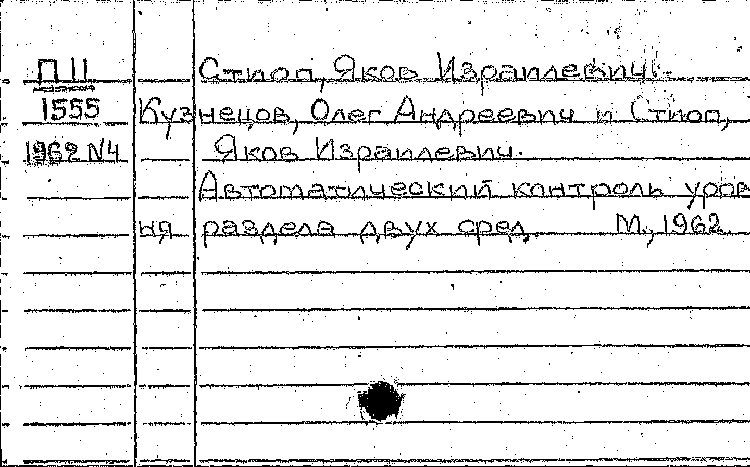 П 11
1555
1962 N4
Стпоп, Яков Израплевпч.
Кузнецов, Олег Андреевпч п Стпоп,
Яков Израплевпч.
Автоматпческпй контроль уров
ня раздела двух сред. М., 1962